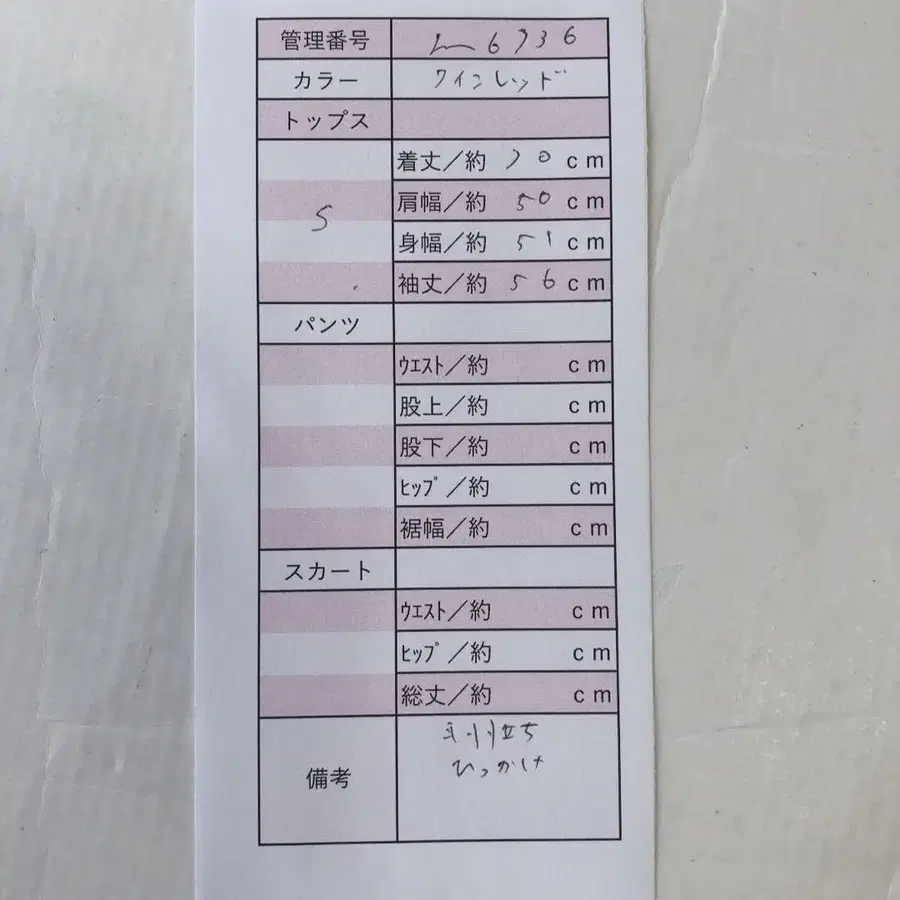 管理番号 6936
カラー ワインレッド
トップス
着丈／約 70 cm
S 肩幅／約 50 cm
身幅／約 51 cm
袖丈／約 56 cm
パンツ
ｳｴｽﾄ／約 cm
股上／約 cm
股下／約 cm
ﾋｯﾌﾟ／約 cm
裾幅／約 cm
スカート
ｳｴｽﾄ／約 cm
ﾋｯﾌﾟ／約 cm
総丈／約 cm
毛羽立ち
備考 ひっかけ